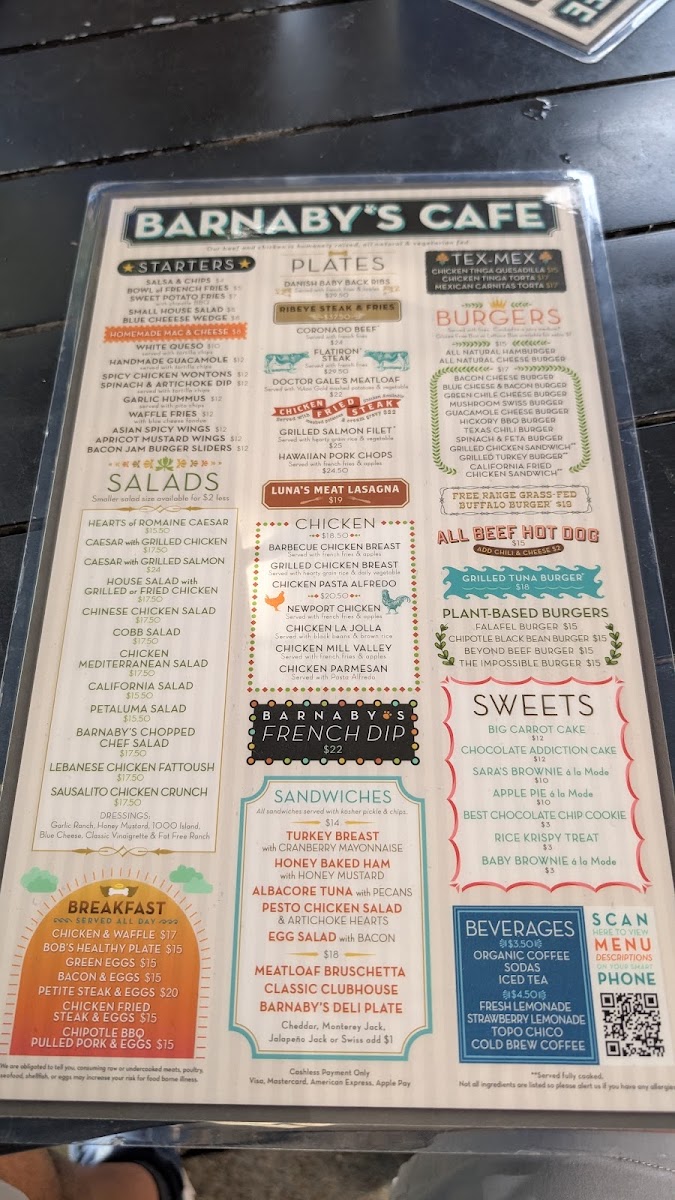 BARNABY'S CAFE
Our beef and chicken is humanely raised, all natural & vegetarian fed
STARTERS
SALSA & CHIPS
BOWL of FRENCH FRIES $5
SWEET POTATO FRIES $7
with chipotle BBQ
SMALL HOUSE SALAD $8
BLUE CHEEESE WEDGE $8
HOMEMADE MAC & CHEESE $8
WHITE QUESO $10
served with tortilla chips
HANDMADE GUACAMOLE $12
served with tortilla chips
SPICY CHICKEN WONTONS $12
SPINACH & ARTICHOKE DIP $12
served with tortilla chips
GARLIC HUMMUS $12
served with pita chips
WAFFLE FRIES $12
with blue cheese fondue
ASIAN SPICY WINGS $12
APRICOT MUSTARD WINGS $12
BACON JAM BURGER SLIDERS $12
SALADS
Smaller salad size available for $2 less
HEARTS of ROMAINE CAESAR
$15.50
CAESAR with GRILLED CHICKEN
$17.50
CAESAR with GRILLED SALMON
$24
HOUSE SALAD with
GRILLED or FRIED CHICKEN
$17.50
CHINESE CHICKEN SALAD
$17.50
COBB SALAD
$17.50
CHICKEN
MEDITERRANEAN SALAD
$17.50
CALIFORNIA SALAD
$15.50
PETALUMA SALAD
$15.50
BARNABY'S CHOPPED
CHEF SALAD
$17.50
LEBANESE CHICKEN FATTOUSH
$17.50
SAUSALITO CHICKEN CRUNCH
$17.50
DRESSINGS:
Garlic Ranch, Honey Mustard, 1000 Island,
Blue Cheese, Classic Vinaigrette & Fat Free Ranch
BREAKFAST
SERVED ALL DAY
CHICKEN & WAFFLE $17
BOB'S HEALTHY PLATE $15
GREEN EGGS $15
BACON & EGGS $15
PETITE STEAK & EGGS $20
CHICKEN FRIED
STEAK & EGGS $15
CHIPOTLE BBQ
PULLED PORK & EGGS $15
PLATES
DANISH BABY BACK RIBS
Served with french fries & apples
$29.50
RIBEYE STEAK & FRIES
CORONADO BEEF*
Served with french fries
$24
FLATIRON*
STEAK
Served with french fries
$29.50
DOCTOR GALE'S MEATLOAF
Served with Yukon Gold mashed potatoes & vegetable
$22
CHICKEN FRIED STEAK
GRILLED SALMON FILET*
Served with hearty grain rice & vegetable
$25
HAWAIIAN PORK CHOPS
Served with french fries & apples
$24.50
LUNA'S MEAT LASAGNA
$19
CHICKEN
$18.50
BARBECUE CHICKEN BREAST
Served with french fries & apples
GRILLED CHICKEN BREAST
Served with hearty grain rice & daily vegetable
CHICKEN PASTA ALFREDO
$20.50
NEWPORT CHICKEN
Served with french fries & apples
CHICKEN LA JOLLA
Served with black beans & brown rice
CHICKEN MILL VALLEY
Served with french fries & apples
CHICKEN PARMESAN
Served with Pasta Alfredo
BARNABY'S
FRENCH DIP
$22
SANDWICHES
All sandwiches served with kosher pickle & chips.
$14
TURKEY BREAST
with CRANBERRY MAYONNAISE
HONEY BAKED HAM
with HONEY MUSTARD
ALBACORE TUNA with PECANS
PESTO CHICKEN SALAD
& ARTICHOKE HEARTS
EGG SALAD with BACON
$18
MEATLOAF BRUSCHETTA
CLASSIC CLUBHOUSE
BARNABY'S DELI PLATE
Cheddar, Monterey Jack,
Jalapeño Jack or Swiss add $1
TEX-MEX
CHICKEN TINGA QUESADILLA $15
CHICKEN TINGA TORTA $17
MEXICAN CARNITAS TORTA $17
BURGERS
$15
ALL NATURAL HAMBURGER
ALL NATURAL CHEESE BURGER
$17
BACON CHEESE BURGER
BLUE CHEESE & BACON BURGER
GREEN CHILE CHEESE BURGER
MUSHROOM SWISS BURGER
GUACAMOLE CHEESE BURGER
HICKORY BBQ BURGER
TEXAS CHILI BURGER
SPINACH & FETA BURGER
GRILLED CHICKEN SANDWICH**
GRILLED TURKEY BURGER**
CALIFORNIA FRIED
CHICKEN SANDWICH**
FREE RANGE GRASS-FED
BUFFALO BURGER $19
ALL BEEF HOT DOG
$15
ADD CHILI & CHEESE $2
GRILLED TUNA BURGER*
$18
PLANT-BASED BURGERS
FALAFEL BURGER $15
CHIPOTLE BLACK BEAN BURGER $15
BEYOND BEEF BURGER $15
THE IMPOSSIBLE BURGER $15
SWEETS
BIG CARROT CAKE
$12
CHOCOLATE ADDICTION CAKE
$12
SARA'S BROWNIE á la Mode
$10
APPLE PIE á la Mode
$10
BEST CHOCOLATE CHIP COOKIE
$3
RICE KRISPY TREAT
$3
BABY BROWNIE á la Mode
$3
BEVERAGES
$3.50
ORGANIC COFFEE
SODAS
ICED TEA
$4.50
FRESH LEMONADE
STRAWBERRY LEMONADE
TOPO CHICO
COLD BREW COFFEE
SCAN
HERE TO VIEW
MENU
DESCRIPTIONS
ON YOUR SMART
PHONE
We are obligated to tell you, consuming raw or undercooked meats, poultry,
seafood, shellfish, or eggs may increase your risk for food borne illness.
Cashless Payment Only
Visa, Mastercard, American Express, Apple Pay
**Served fully cooked.
Not all ingredients are listed so please alert us if you have any allergies